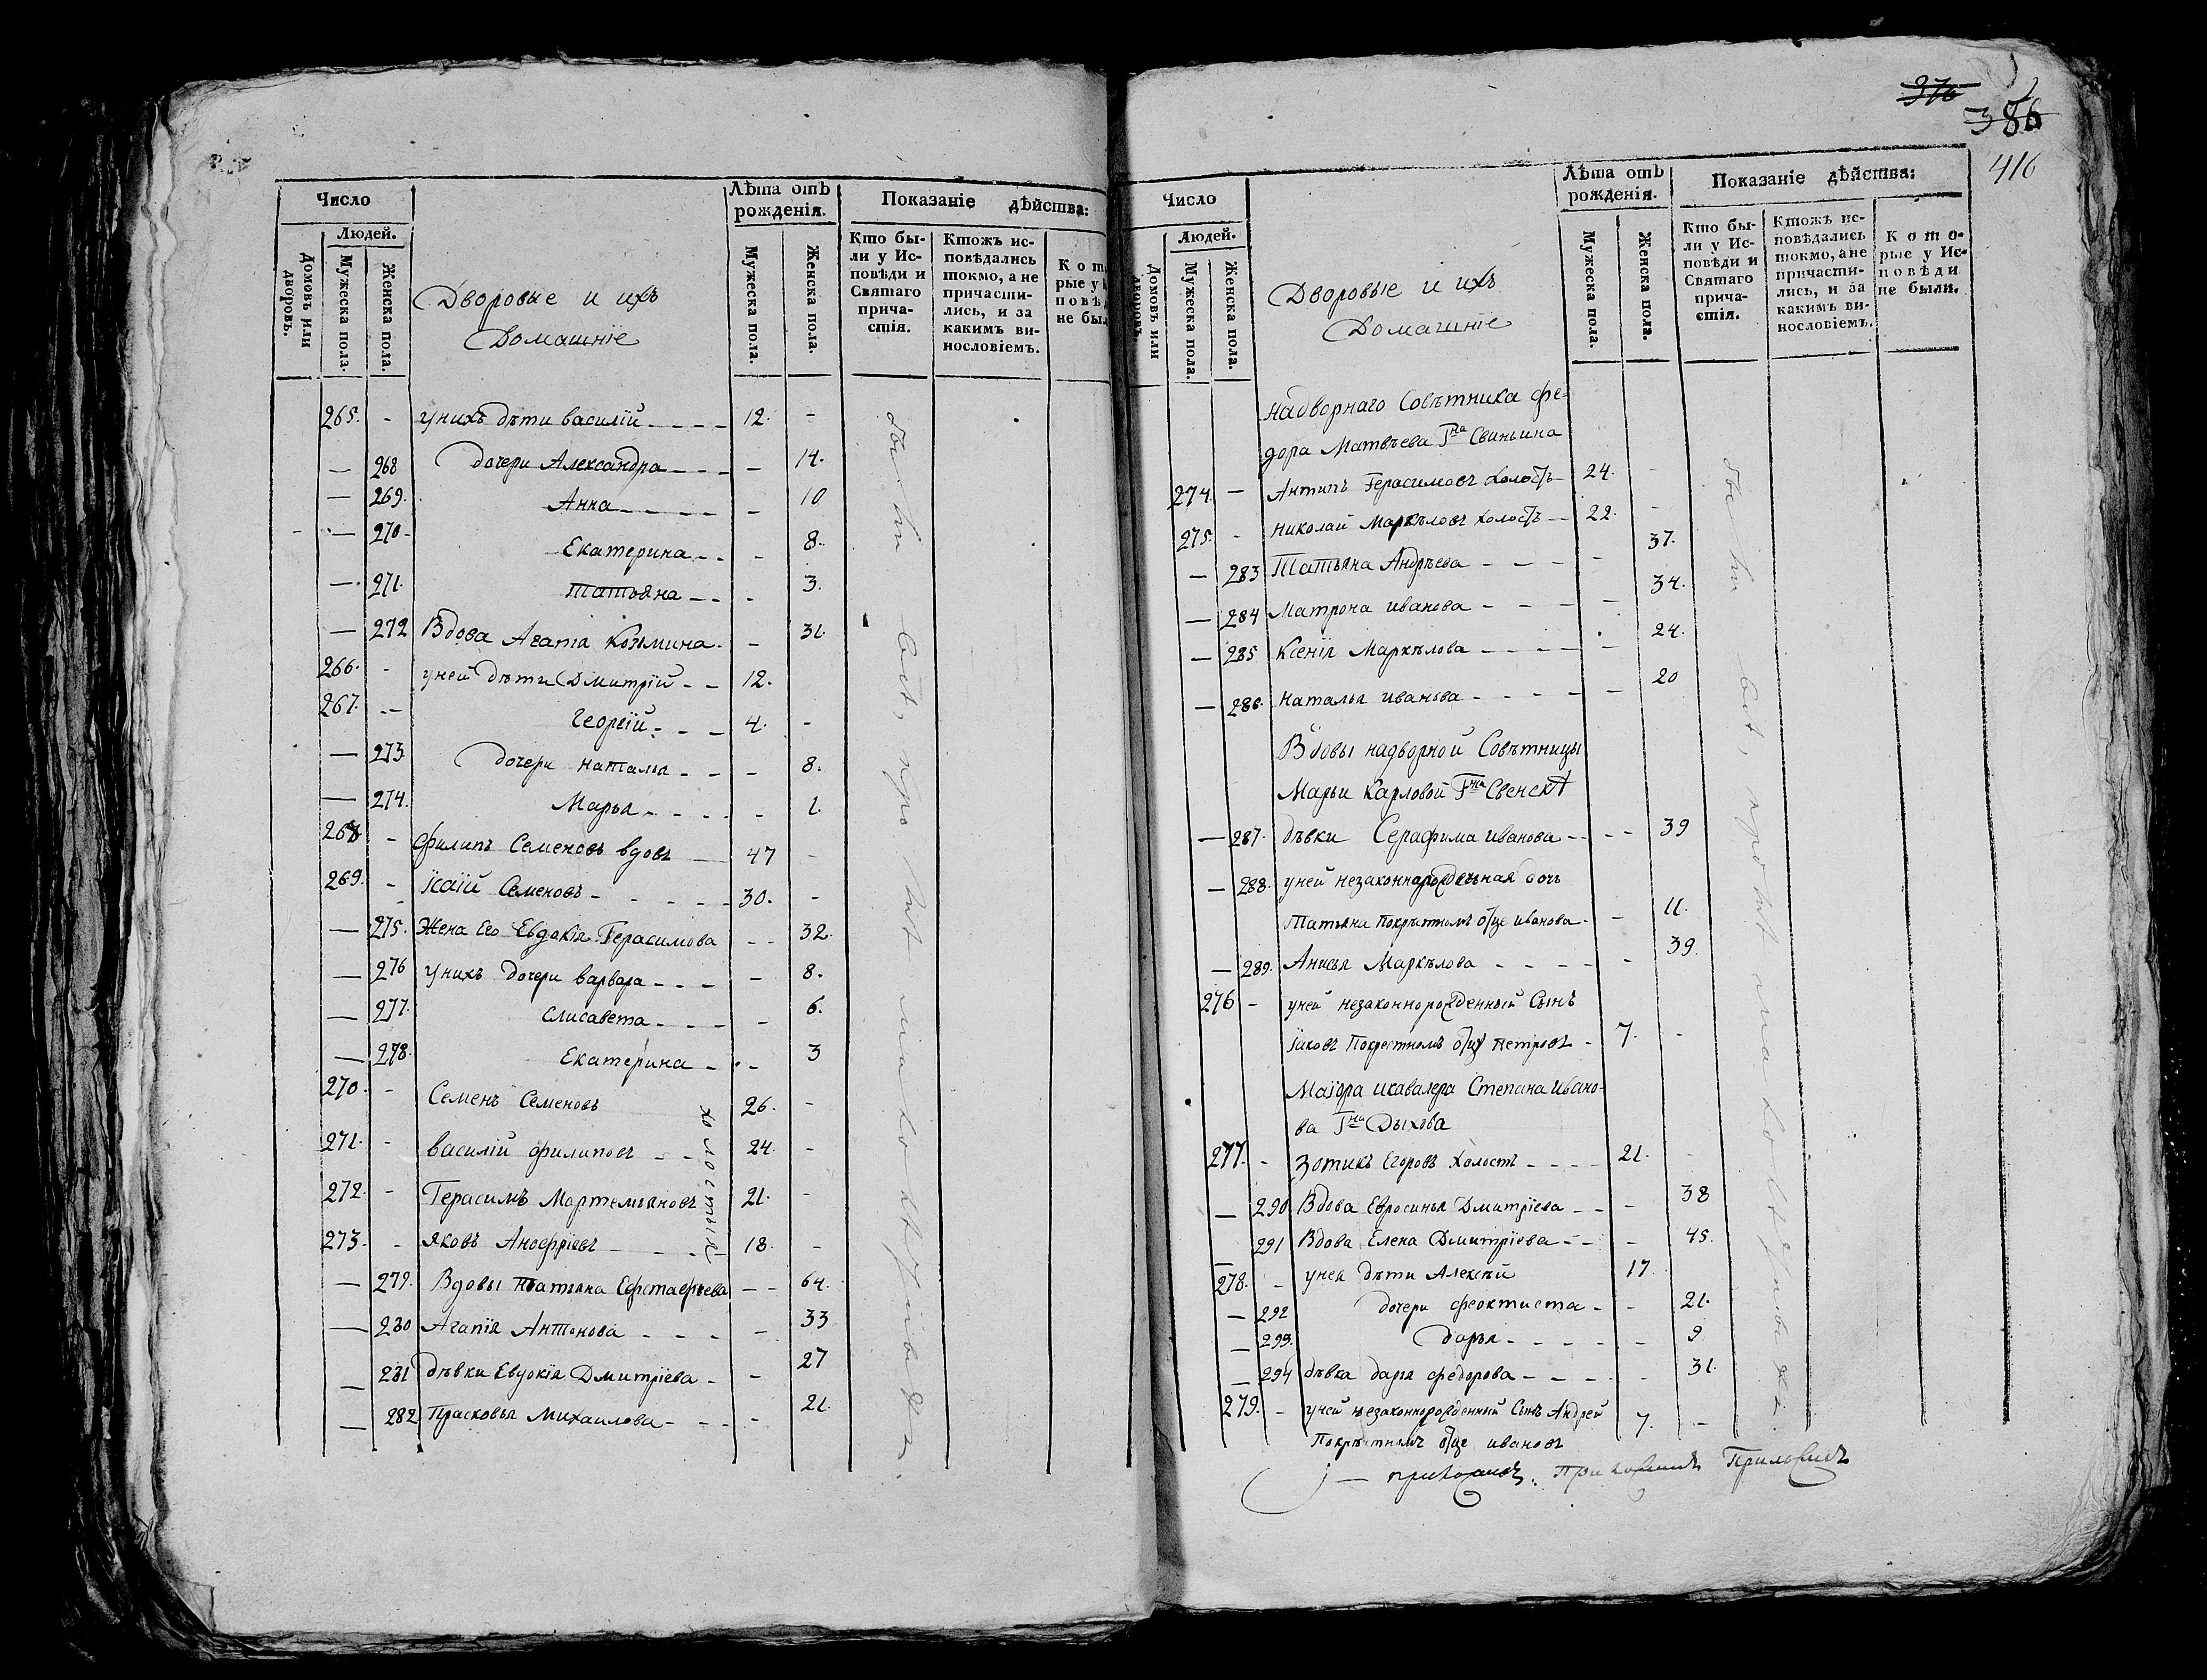 Число
Людей.
Домовъ или дворовъ.
Мужеска пола.
Женска пола.
Дворовые и ихъ
Домашніе
Лѣта отъ рожденія.
Мужеска пола.
Женска пола.
Показаніе дѣйства:
Кто были у Исповѣди и Святаго причастія.
Ктожъ исповѣдались токмо, а не причастились, и за какимъ винословіемъ.
265. - унихъ дѣти василій 12. -
— 268 дочери Александра - 14.
— 269. Анна - 10
— 270. Екатерина - 8.
— 271. Татьяна - 3.
— 272 Вдова Агафія Козьмина - 31.
266. - уней дѣти Дмитрій 12.
267. - Георгій 4. -
— 273. дочери Наталья - 8.
— 274. Марья - 1.
268 - Филипъ Семеновъ вдовъ 47 -
269. - Ісаій Семеновъ 30. -
— 275. Жена Его Евдокія Герасимова - 32.
— 276 Унихъ дочери варвара - 8.
— 277. Елисавета - 6.
— 278. Екатерина - 3
270. - Семенъ Семеновъ 26. -
271. - василій филиповъ 24. -
272. - Герасимъ Мартемьяновъ 21. -
273. - Яковъ Аноѳріевъ 18. -
холостые
— 279. Вдовы Татьяна Евстафьева - 64.
— 280 Агапія Антонова - 33
— 281 дѣвки Евдокія Дмитріева - 27
— 282 Прасковья Михаилова - 21.
376
386
416
Число
Людей.
Домовъ или дворовъ.
Мужеска пола.
Женска пола.
Дворовые и ихъ
Домашніе
Лѣта отъ рожденія.
Мужеска пола.
Женска пола.
Показаніе дѣйства:
Кто были у Исповѣди и Святаго причастія.
Ктожъ исповѣдались токмо, а не причастились, и за какимъ винословіемъ.
Которые у Исповѣди не были.
надворнаго Совѣтника фе-
дора Матвѣева Гна Свиньина
274. — Антипъ Герасимовъ холостъ 24. -
275. - николай Маркѣловъ холостъ 22. -
— 283 Татьяна Андрѣева - 37.
— 284 Матрона иванова - 34.
— 285 Ксенія Маркѣлова - 24.
— 286. Наталья иванова - 20
Вдовы надворной Совѣтницы
Марьи Карловой Гжи
— 287. дѣвки Серафима иванова - 39
— 288. уней незаконнорожденная дочь
Татьяна покрѣстномъ отце иванова - 11.
— 289. Анисья Маркѣлова - 39.
276 - уней незаконнорожденный Сынъ
Іаковъ Покрестномъ отцу петровъ 7. -
Маіора икавалера Степана Ивано-
ва Гна Дыхова
277. - Зотикъ Егоровъ Холостъ 21. -
— 290 Вдова Евросинья Дмитріева - 38
291 Вдова Елена Дмитріева - 45.
278. - унея дѣти Алексѣй 17
— 292 дочери феоктиста - 21.
— 293. дарья - 9
— 294 дѣвка дарья федорова - 31.
279. - уней незаконнорожденный Сынъ Андрей 7. -
Покрѣстномъ отце ивановъ